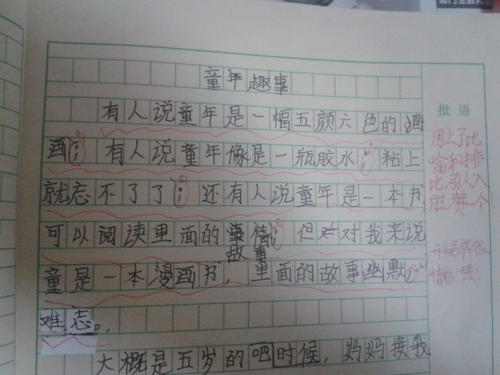 童年趣事
批语
有人说童年是一幅五颜六色的
画；有人说童年像是一瓶胶水；粘上
就忘不了了；还有人说童年是一本书
可以阅读里面的故事；但对我来说
童是一本漫画书，里面的故事幽默
难忘。
大概是五岁的吧时候，妈妈接我
用上了比
喻手排
比引人入
胜，赞一个